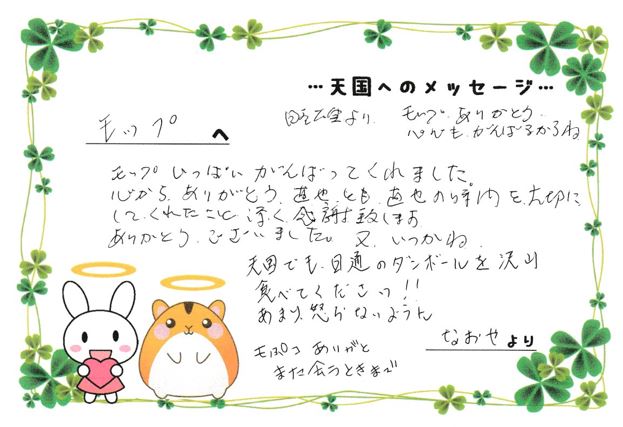 …天国へのメッセージ…
より モップ、ありがとう、
がんばるからね
モップ へ
モップ いっぱい がんばってくれました。
心から、ありがとう、直也、とも、直也の を、大切に
してくれたこと 深く 感謝致します
ありがとう、ございました。 又、いつかね、
天国でも、日通のダンボールを 沢山
食べてください!!
あまり、怒らないように
なおや より
ありがと
また会うときまで